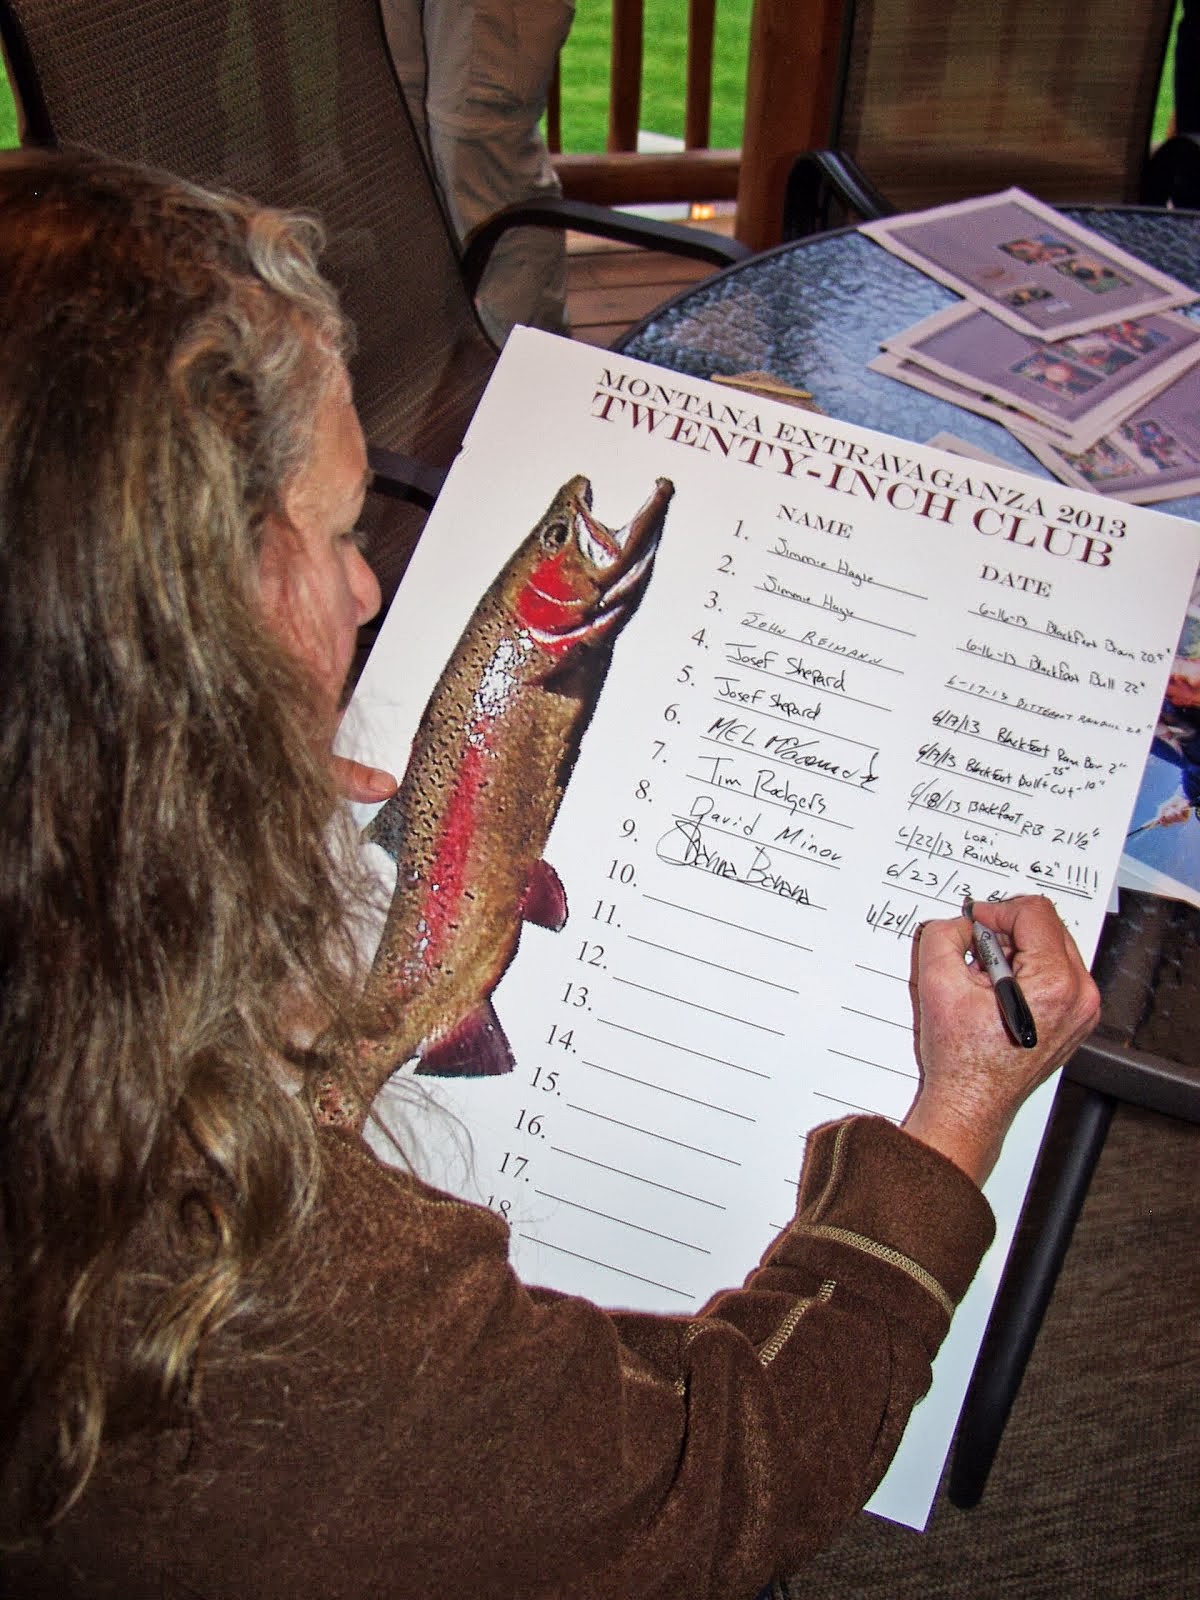 MONTANA EXTRAVAGANZA 2013
TWENTY-INCH CLUB
NAME DATE
1. Jimmie Hagle 6-16-13 Blackfoot Brown 20.5"
2. Jimmie Hagle 6-16-13 Blackfoot Bull 22"
3. JOHN REIMANN 6-17-13 BITTERROOT RAINBOW
4. Josef Shepard 6/17/13 Blackfoot
5. Josef Shepard 6/17/13 Blackfoot Bull + Cut -10"
-25"
6. MEL 6/18/13 Blackfoot RB 21½"
7. Tim Rodgers 6/22/13 LORI Rainbow 62" !!!!
8. David Minor 6/23/13
9. Banana 6/24/
10.
11.
12.
13.
14.
15.
16.
17.
18.